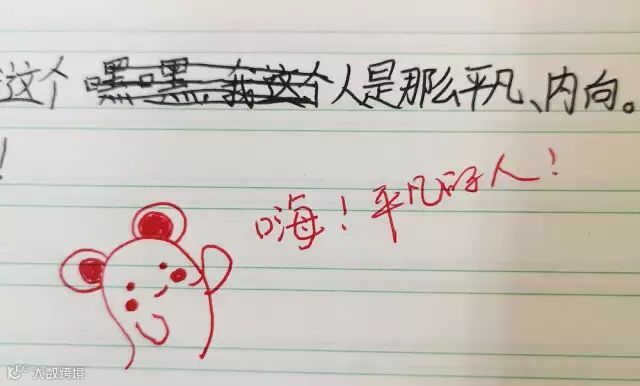 这个嘿嘿，我这个人是那么平凡、内向。
！
嗨！平凡的人！
大数跨境